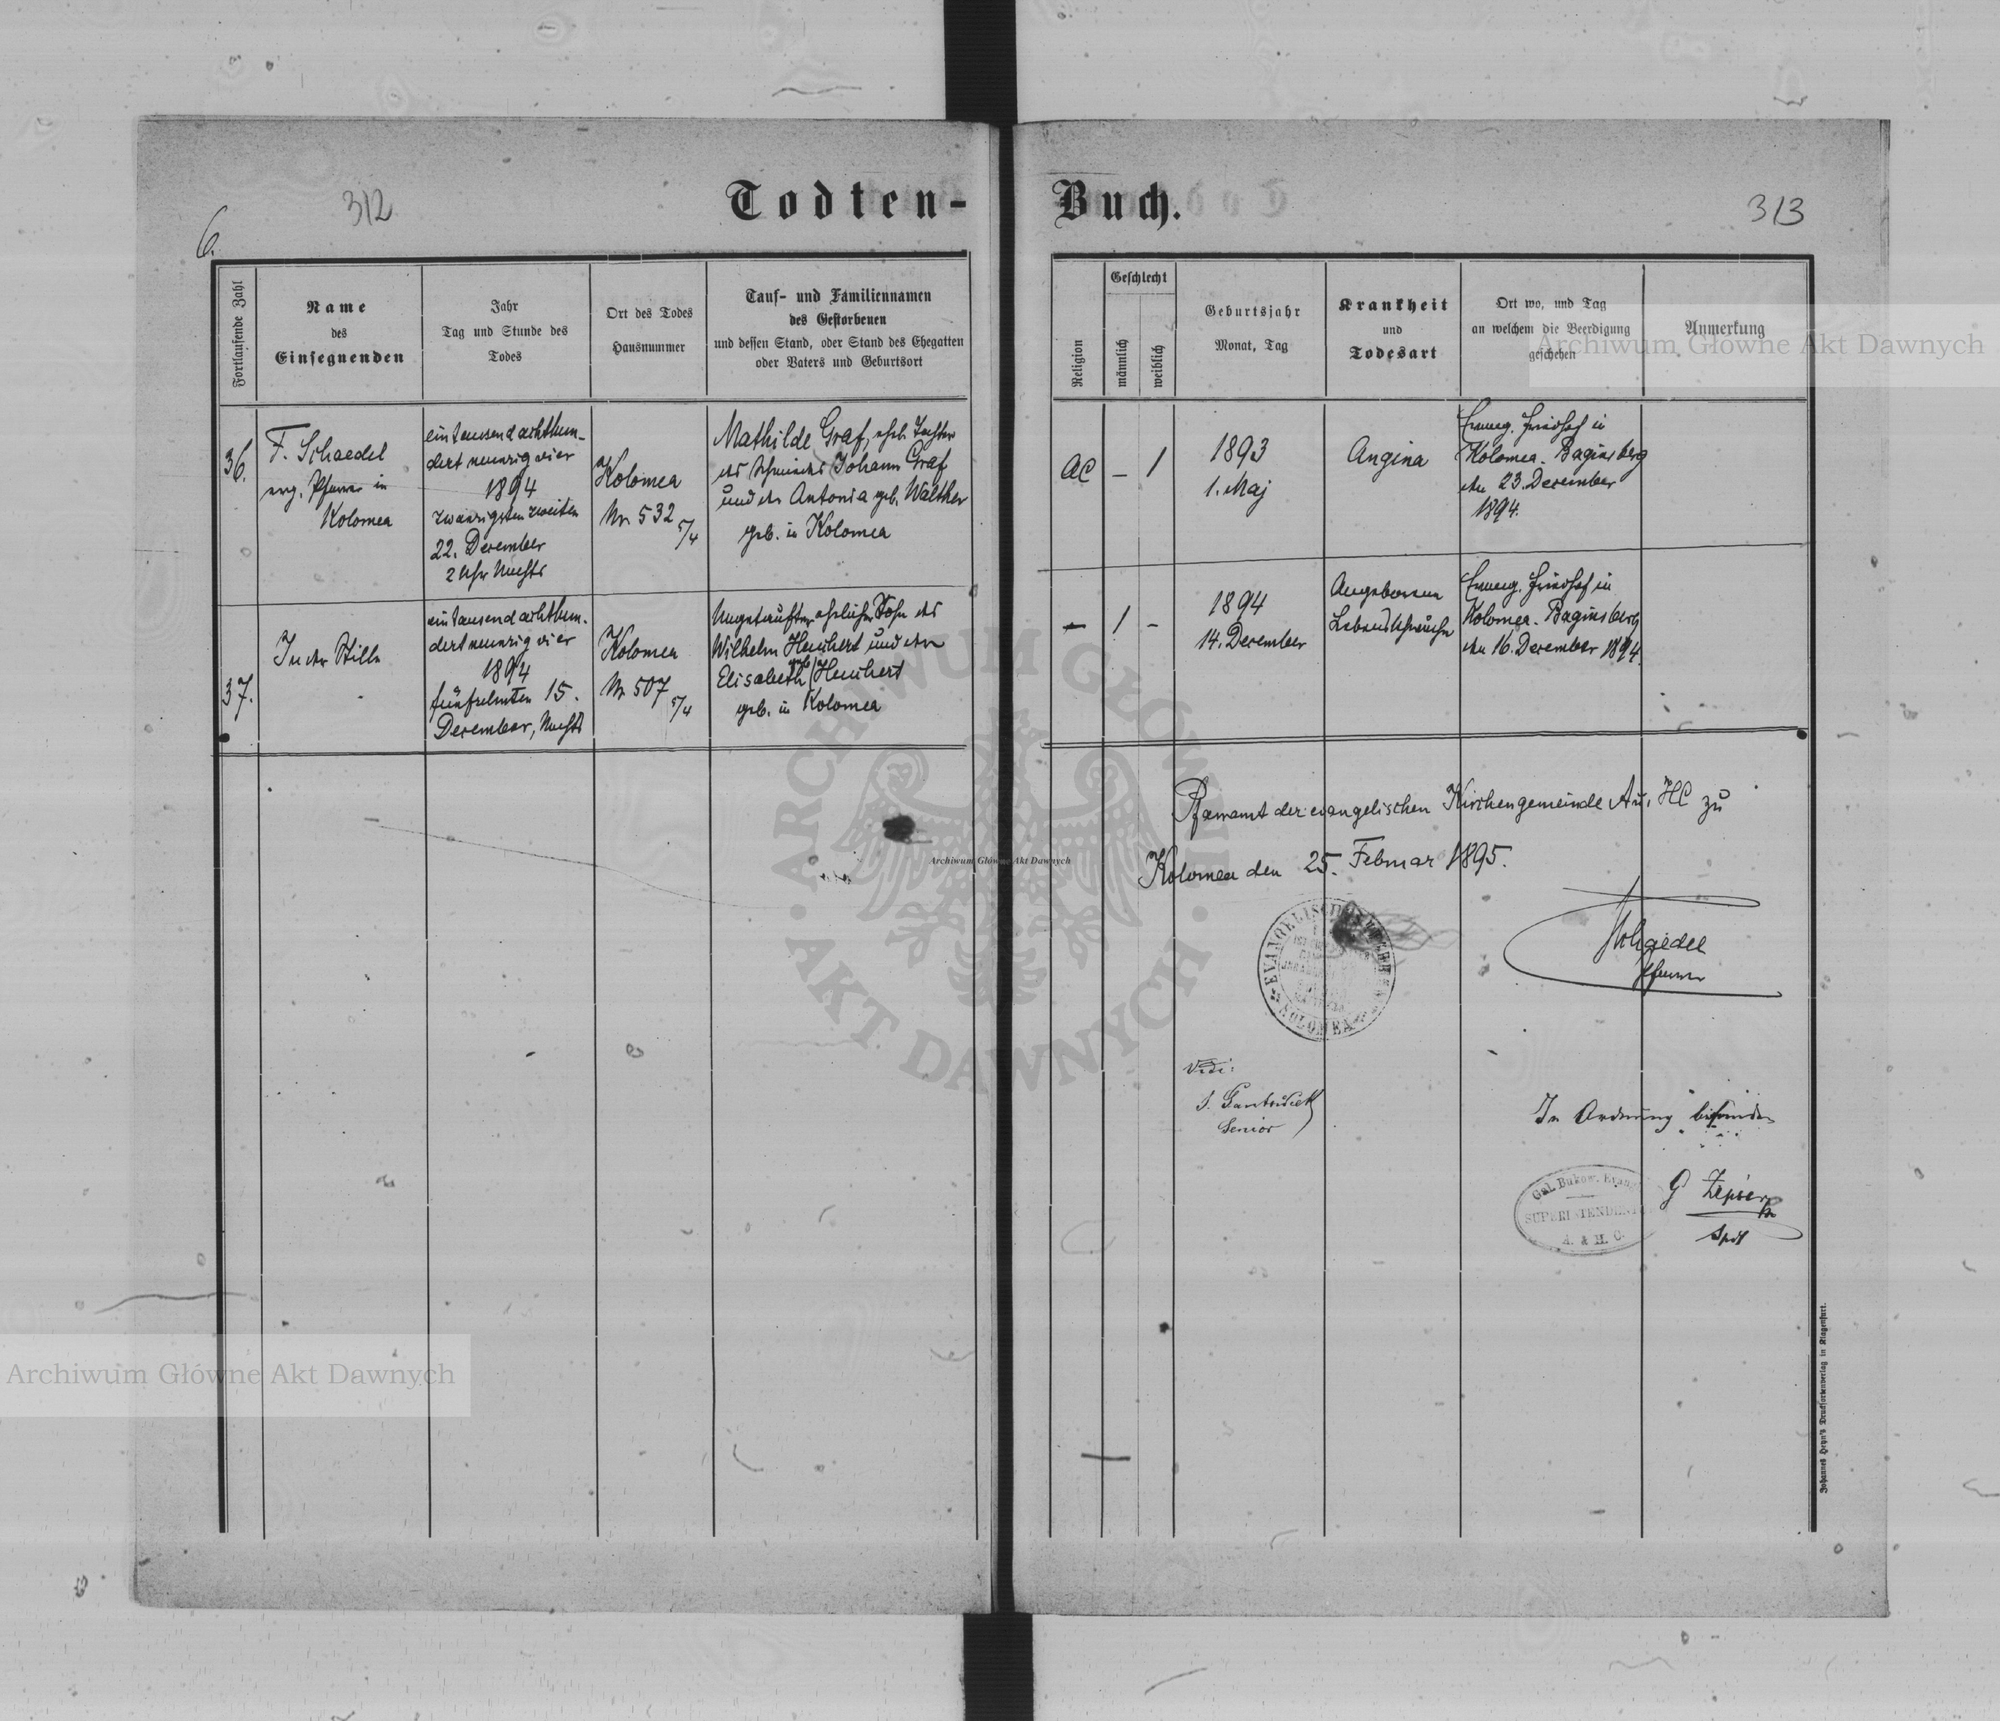 312
Todten-
6.
Fortlaufende Zahl
Name
des
Einsegnenden
Jahr
Tag und Stunde des
Todes
Ort des Todes
Hausnummer
Tauf- und Familiennamen
des Gestorbenen
und dessen Stand, oder Stand des Ehegatten
oder Vaters und Geburtsort
36.
F. Schaedel
evg. Pfarrer in
Kolomea
ein tausend achthun-
dert neunzig vier
1894
zwanzigsten zweiten
22. Dezember
2 Uhr Nachts
Kolomea
Nr 532 5/4
Mathilde Graf, ehel. Tochter
des Schmiedes Johann Graf
und der Antonia geb. Walther
geb. in Kolomea
37.
In der Stille
ein tausend achthun-
dert neunzig vier
1894
fünfzehnten 15.
Dezember, Nachts
Kolomea
Nr 507 5/4
Ungetaufter ehelicher Sohn des
Wilhelm und der
Elisabeth geb.
geb. in Kolomea
Buch.
313
Religion
Geschlecht
männlich
weiblich
Geburtsjahr
Monat, Tag
Krankheit
und
Todesart
Ort wo, und Tag
an welchem die Beerdigung
geschehen
Anmerkung
AC
–
1
1893
1. Maj
Angina
Evang. Friedhof in
Kolomea-Baginsberg
den 23. Dezember
1894.
–
1
–
1894
14. Dezember
Angeborene
Lebensschwäche
Evang. Friedhof in
Kolomea-Baginsberg
den 16. Dezember 1894.
Pfarramt der evangelischen Kirchengemeinde A u. HC zu
Kolomea den 25. Februar 1895.
Schaedel
Pfarrer
EVANGELISCHES
KOLOMEA
Vidi:
Senior
In Ordnung befunden
Gal. Bukow. Evang.
SUPERINTENDENTUR
A. & H. C.
G Zipser
Spdt
Johannes Heyn's Drucksortenverlag in Klagenfurt.
Archiwum Główne Akt Dawnych
Archiwum Główne Akt Dawnych
Archiwum Główne Akt Dawnych
ARCHIWUM GŁÓWNE
AKT DAWNYCH